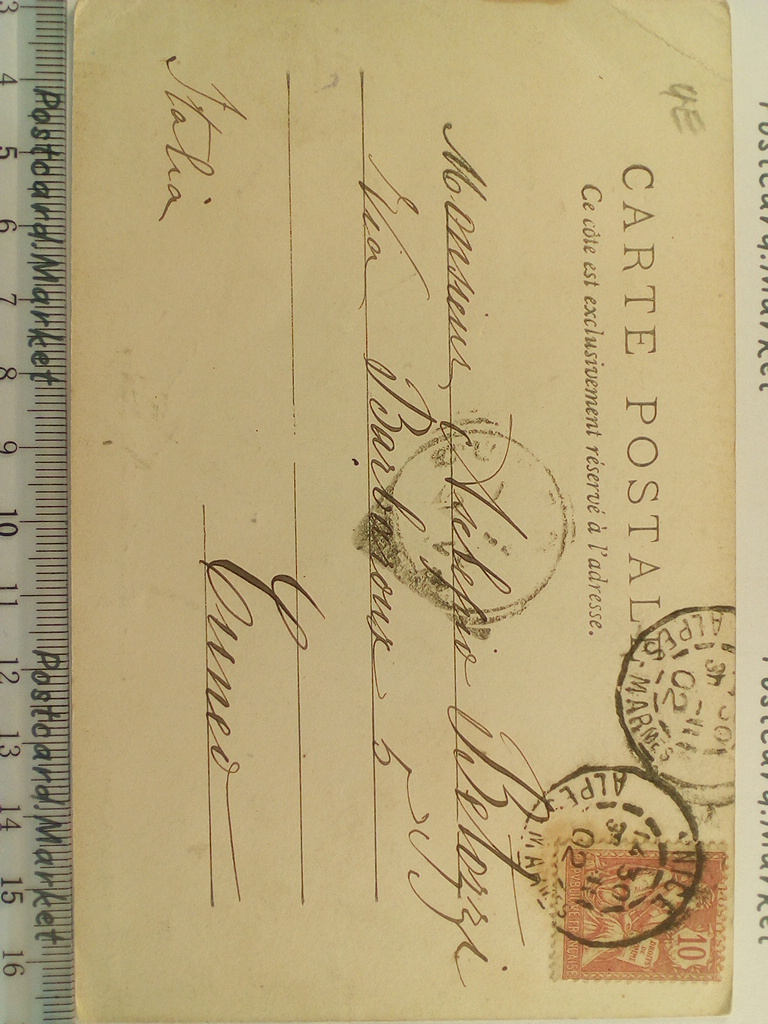 4E
CARTE POSTALE
Ce côté est exclusivement réservé à l'adresse.
10
RÉPUBLIQUE FRANÇAISE
DROITS DE L'HOMME
NICE
ALPES MARMES
02
ALPES MARMES
02
Monsieur
Via Barbaroux 5
Cuneo
Italia
Postcard.Market Postcard.Market
3 4 5 6 7 8 9 10 11 12 13 14 15 16
Postcard.Market Postcard.Market